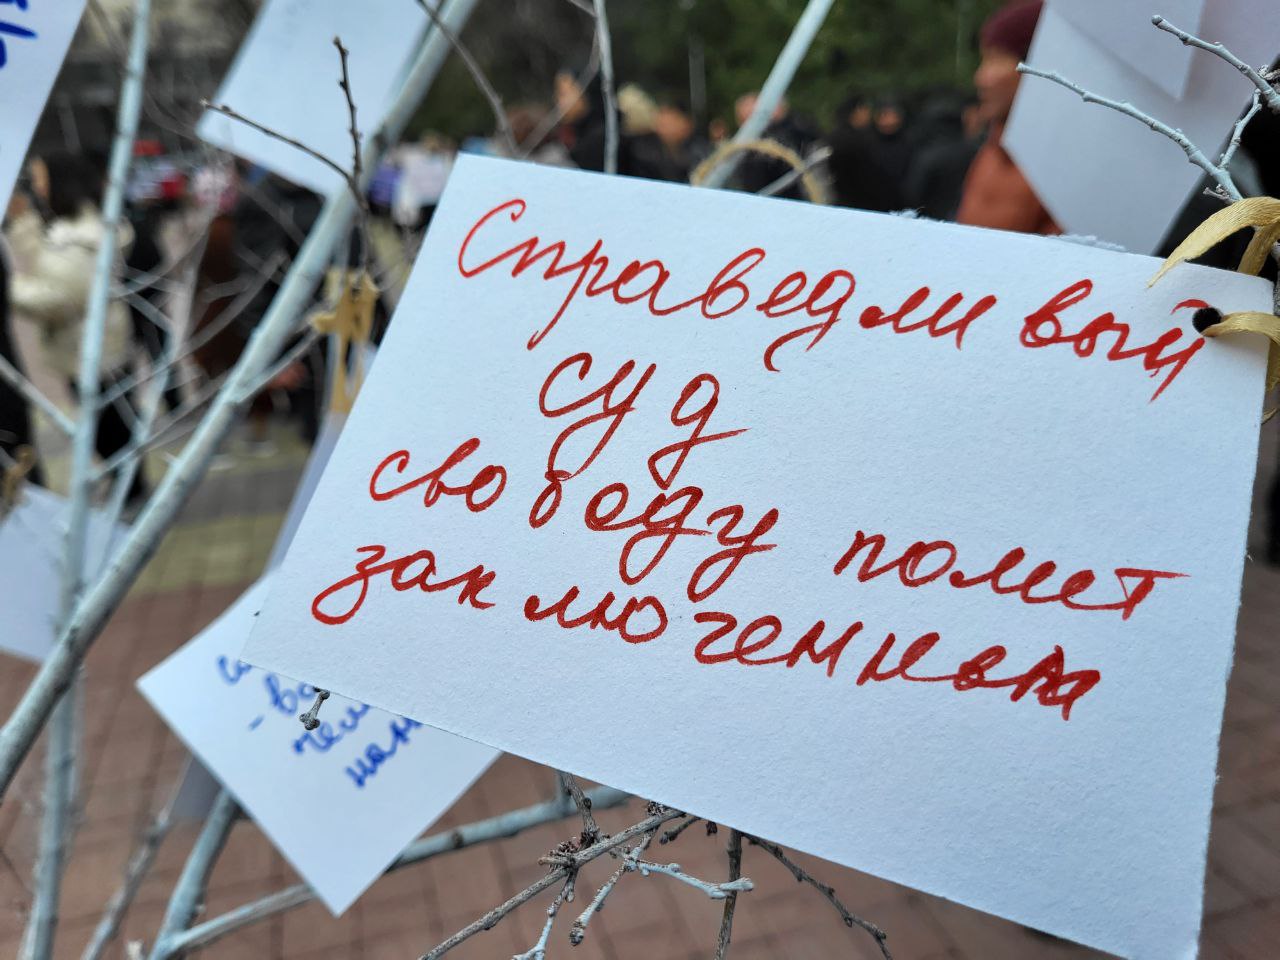 Справедливый
суд
свободу полит
заключенным